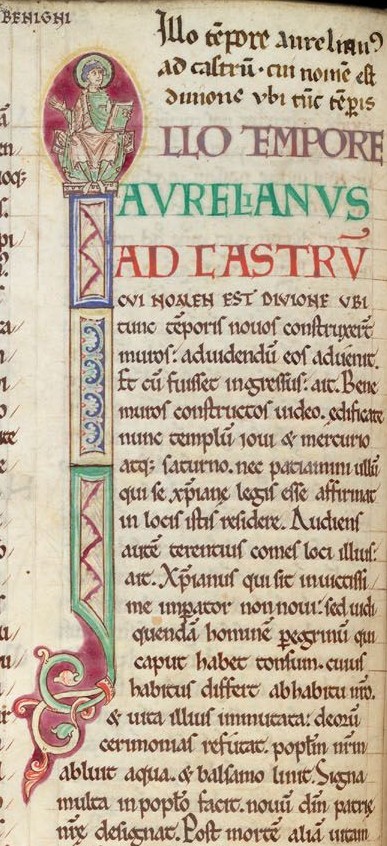 BENIGNI
Illo tēpore aurelianꝰ
ad castrū · cui nomē est
diuione vbi tūc tēp̄is
LLO TEMPORE
AVRELIANVS
AD CASTRV̄
CVI NOMEN EST DIVIONE VBI
tunc tēporis nouos construxer̄t
muros: aduidendū eos aduenit.
Et cū fuisset ingressus: ait. Bene
muros constructos uideo. edificate
nunc templū ioui & mercurio
atq; saturno. nec patiamini ullū
qui se xp̄iane legis esse affirmat
in locis istis residere. Audiens
autē terentius comes loci illius:
ait. Xp̄ianus qui sit inuictissi
me imꝑator non noui: sed uidi
quendā hominē ꝑegrinū qui
caput habet tonsum. cuius
habitus differt abhabitu nr̄o.
& uita illius immutata: deorū
cerimonias refutat. popl̄m nr̄m
abluit aqua. & balsamo linit. Signa
multa in popl̄o facit. nouū dīn patrię
nr̄ę designat. Post mortē aliā uitam